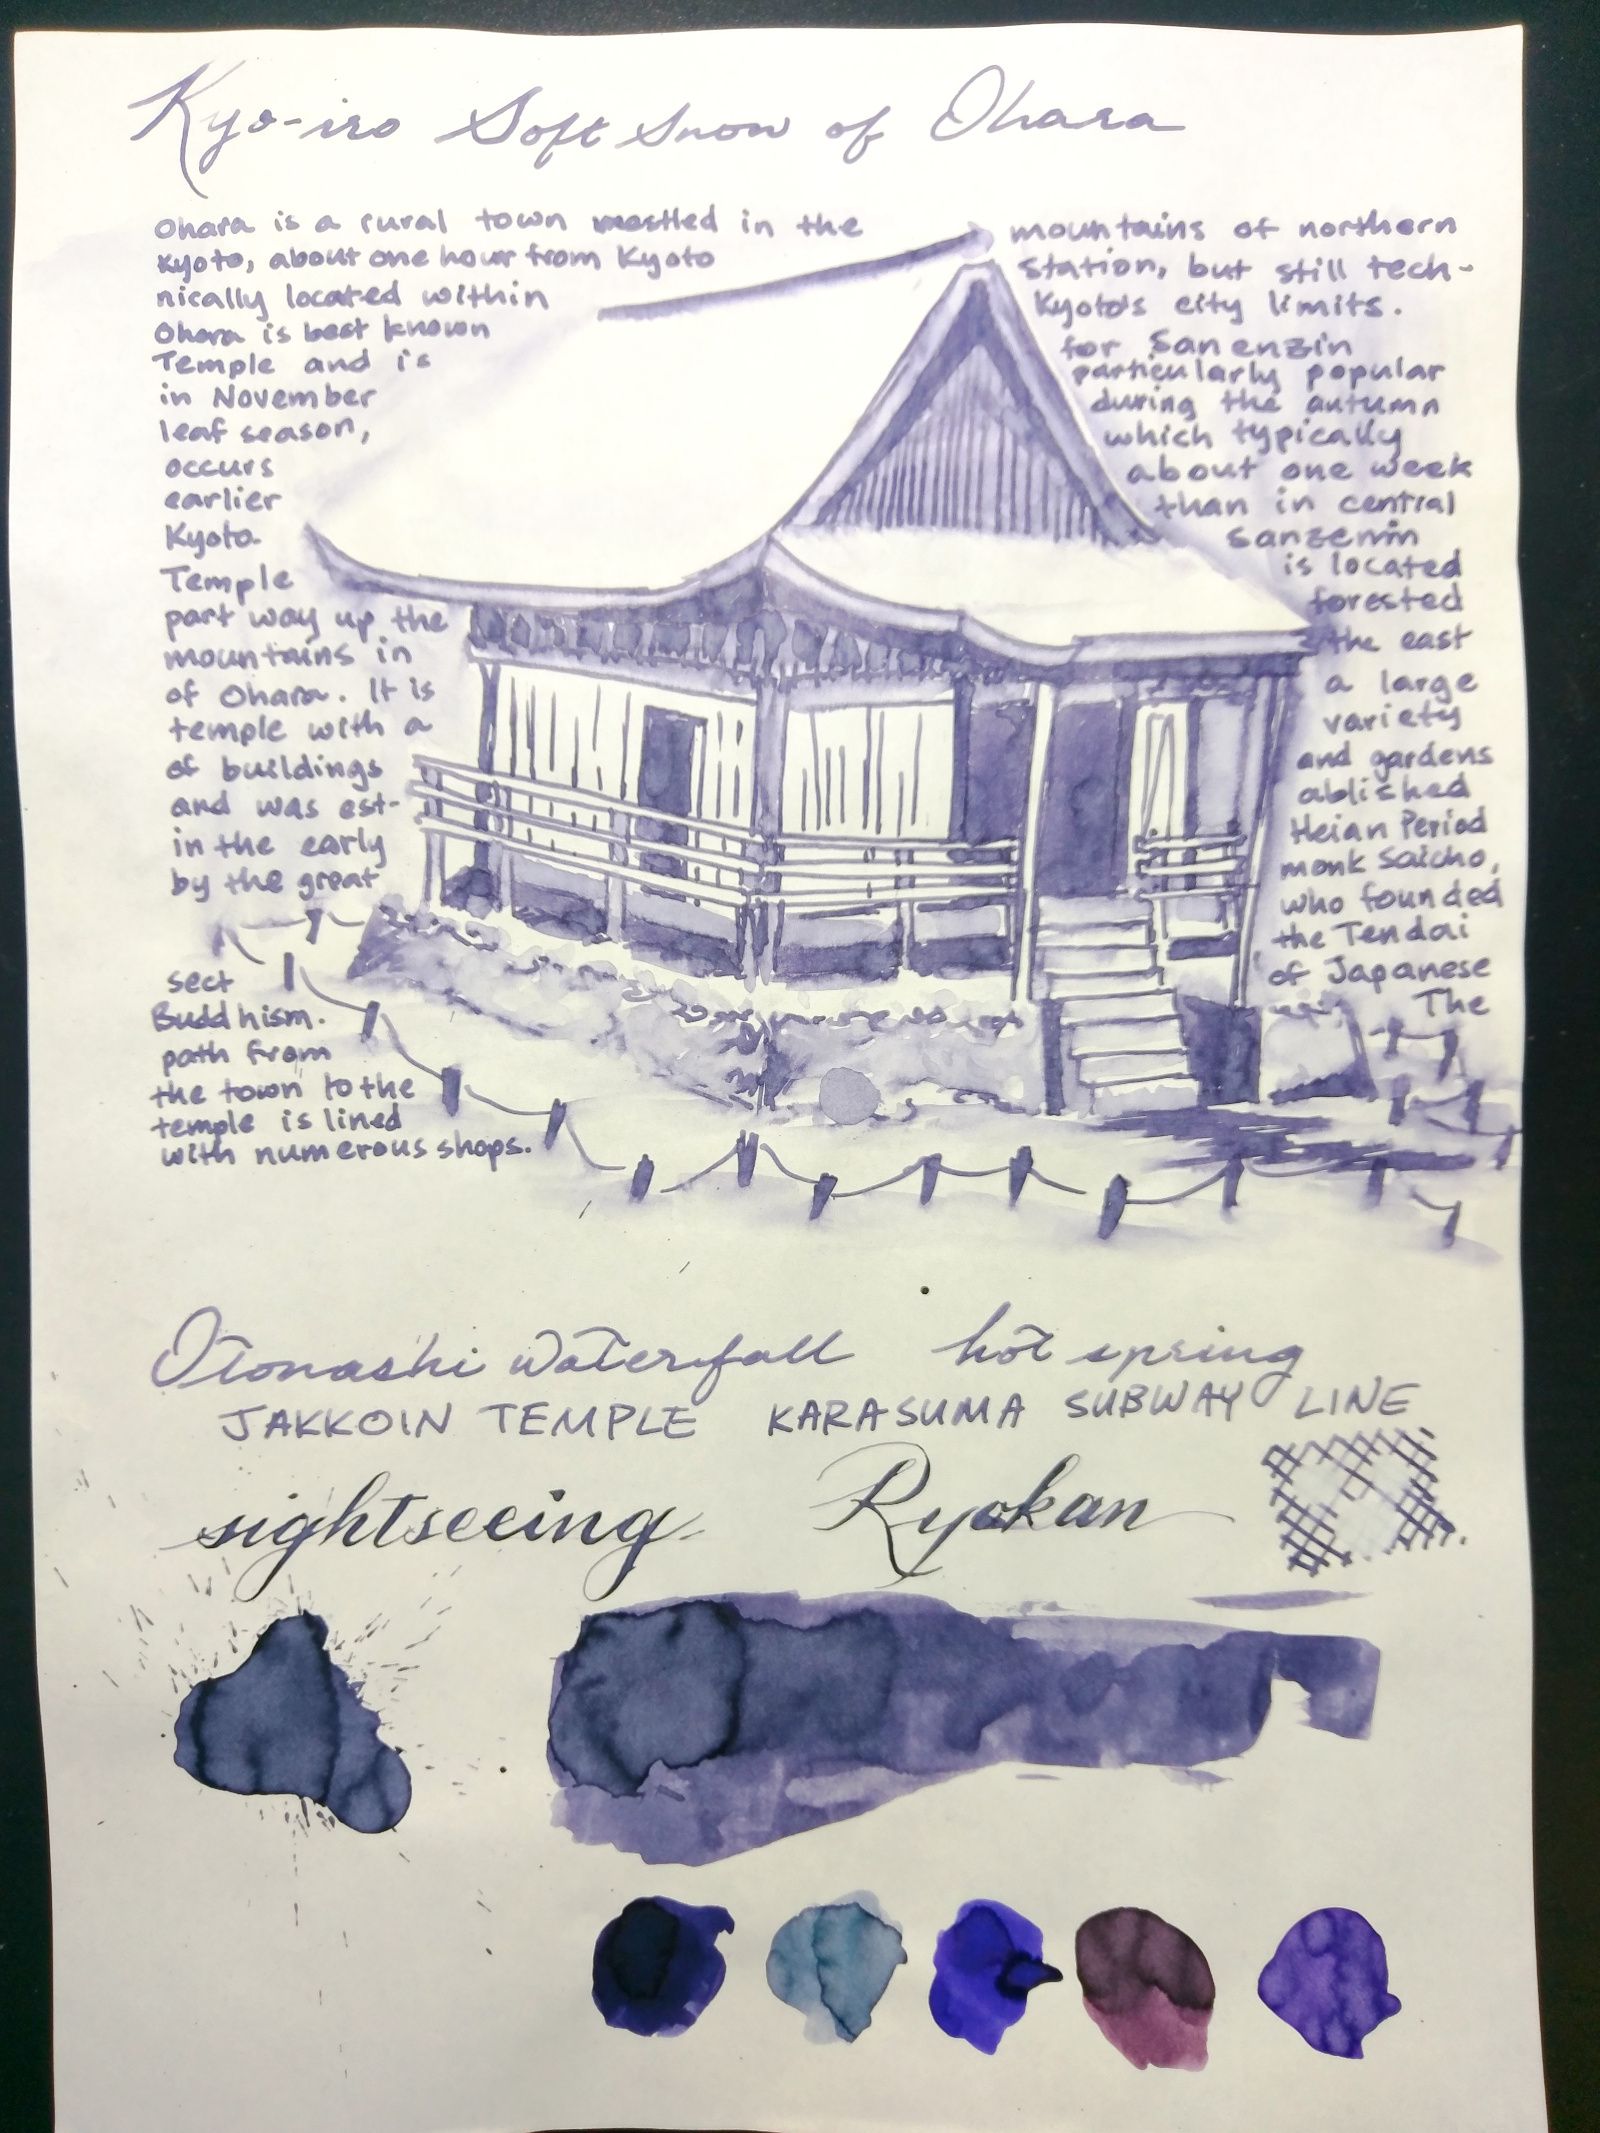 Kyo-iro Soft Snow of Ohara
Ohara is a rural town nestled in the mountains of northern
Kyoto, about one hour from Kyoto Station, but still tech-
nically located within Kyoto's city limits.
Ohara is best known for Sanenzin
Temple and is particularly popular
in November during the autumn
leaf season, which typically
occurs about one week
earlier than in central
Kyoto. Sanzenin
Temple is located
part way up the forested
mountains in the east
of Ohara. It is a large
temple with a variety
of buildings and gardens
and was est- ablished
in the early Heian Period
by the great monk Saicho,
who founded
the Tendai
sect of Japanese
Buddhism. The
path from
the town to the
temple is lined
with numerous shops.
Otonashi Waterfall hot spring
JAKKOIN TEMPLE KARASUMA SUBWAY LINE
sightseeing Ryokan